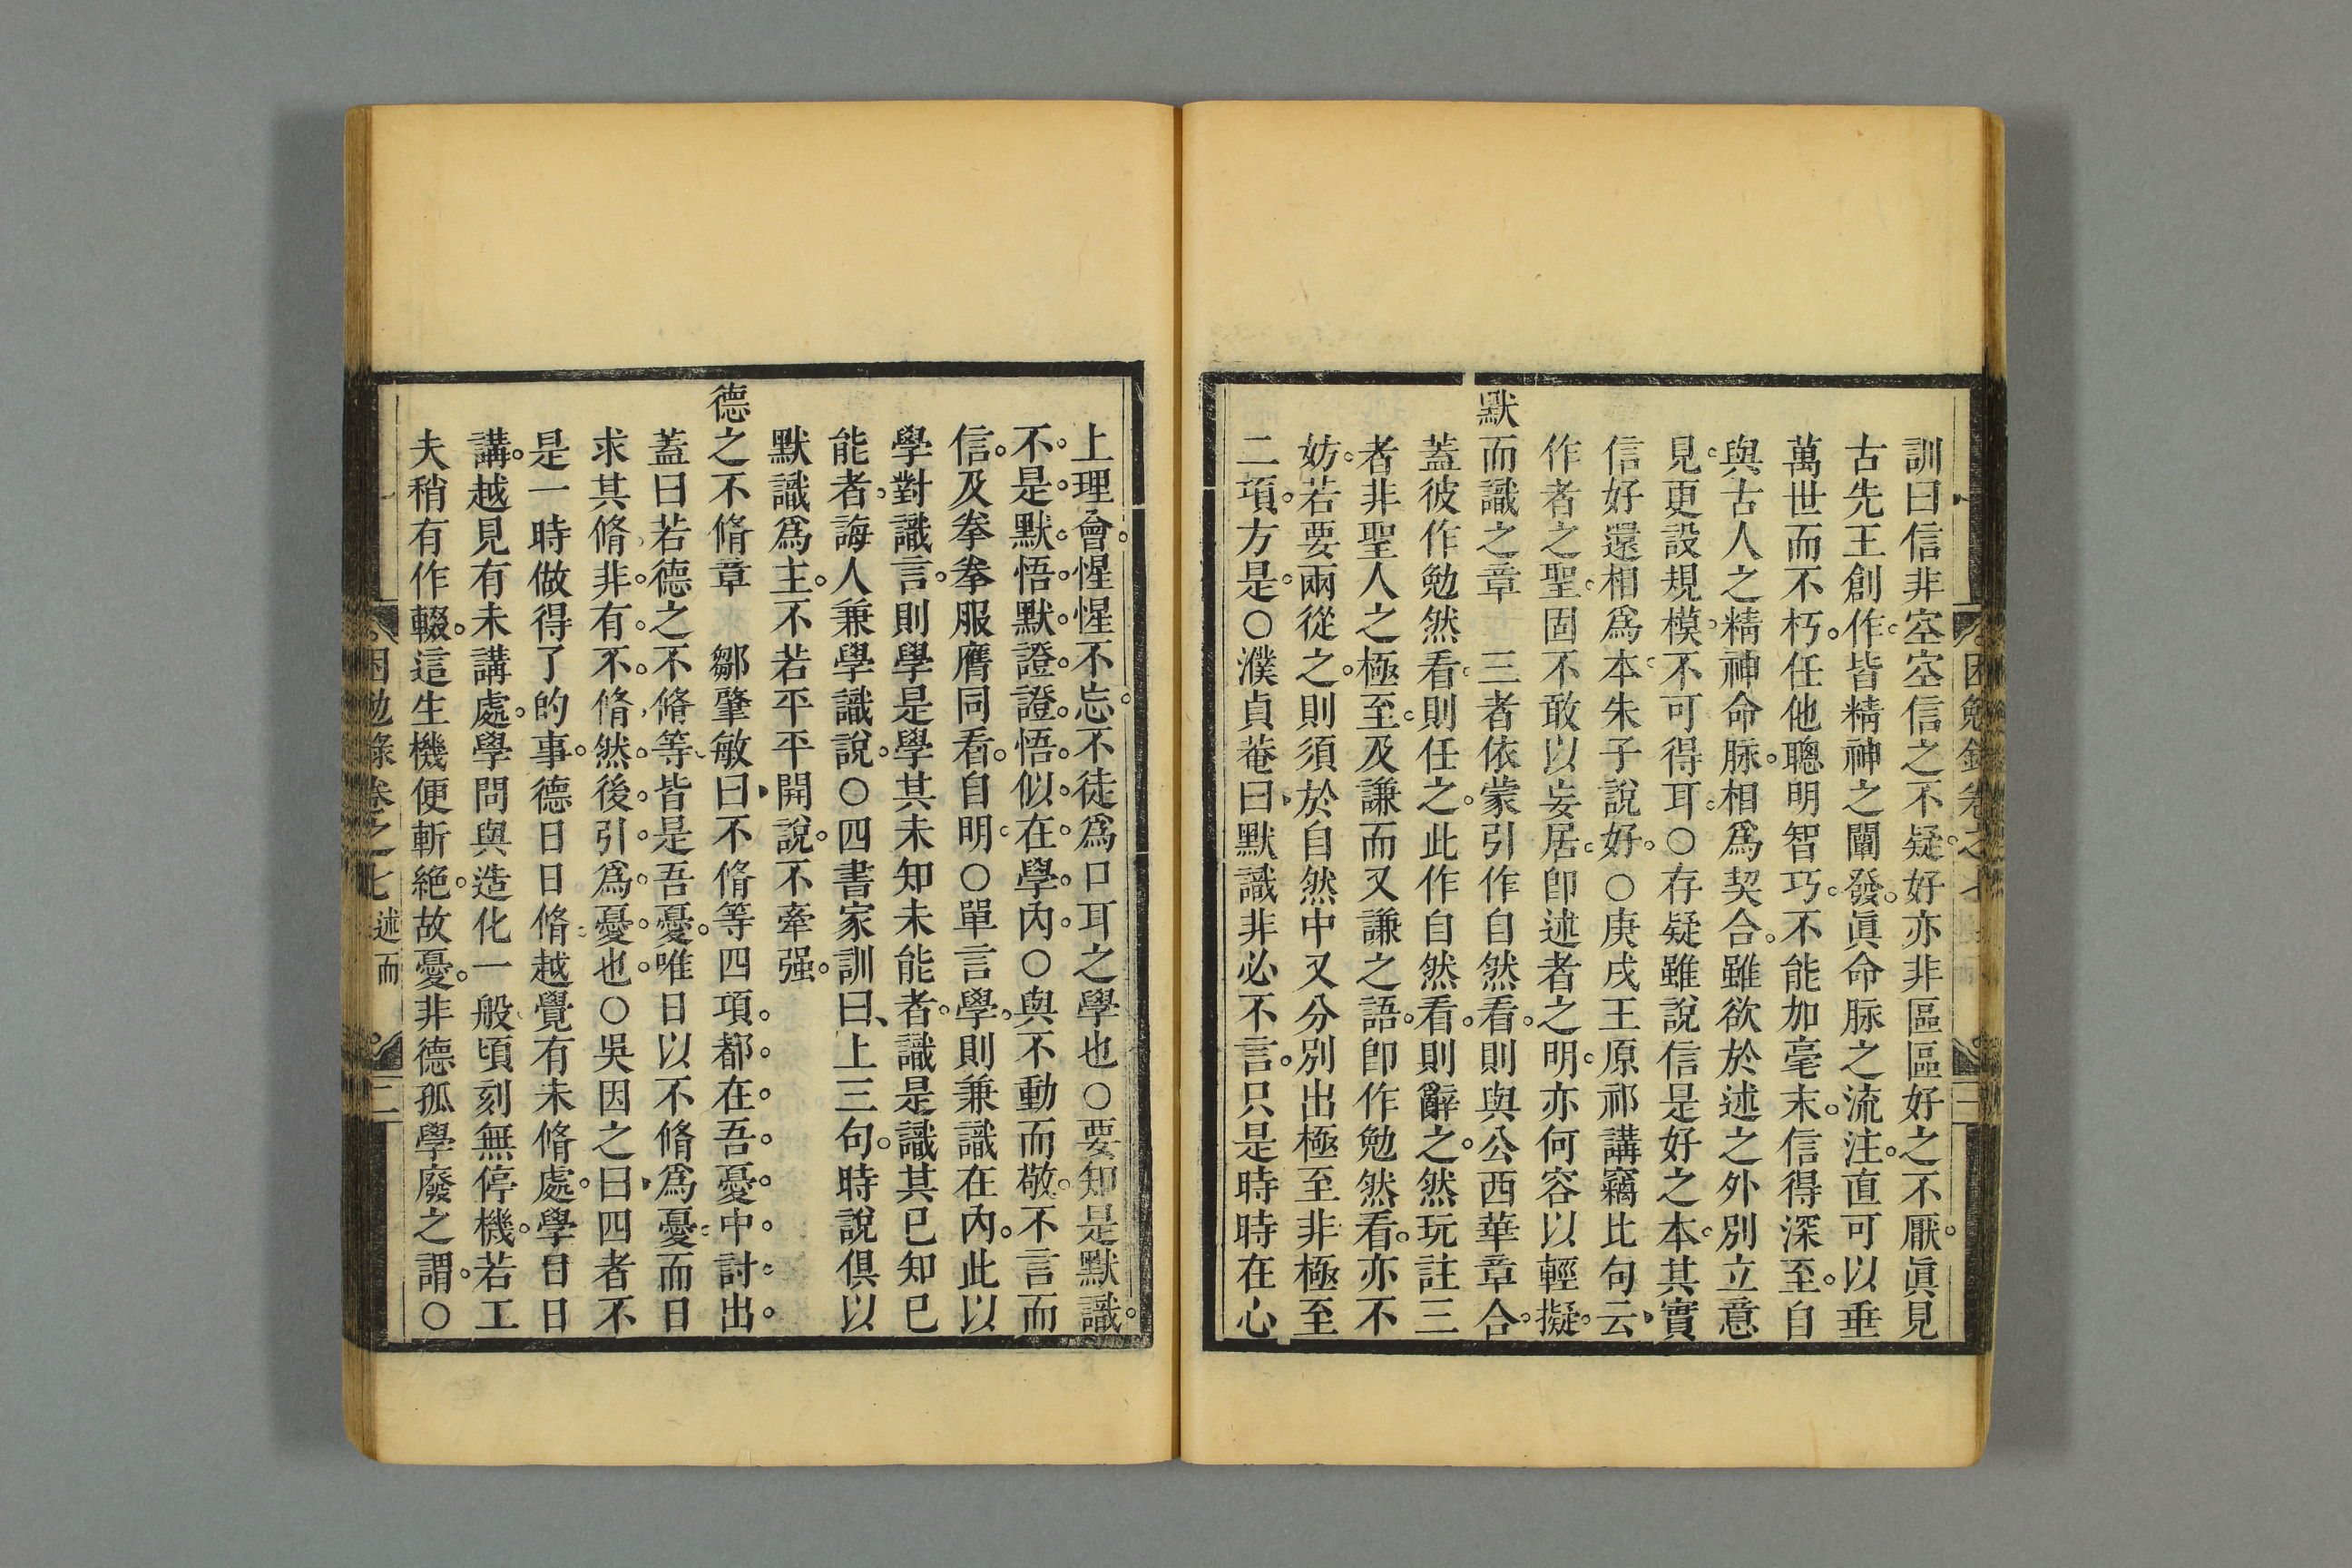 訓曰信非空空信之不疑好亦非區區好之不厭眞見
古先王創作皆精神之闡發眞命脉之流注直可以垂
萬世而不朽任他聰明智巧不能加毫末信得深至自
與古人之精神命脉相爲契合雖欲於述之外別立意
見更設規模不可得耳○存疑雖說信是好之本其實
信好還相爲本朱子說好○庚戌王原祁講竊比句云
作者之聖固不敢以妄居卽述者之明亦何容以輕擬
默而識之章 三者依蒙引作自然看則與公西華章合
蓋彼作勉然看則任之此作自然看則辭之然玩註三
者非聖人之極至及謙而又謙之語卽作勉然看亦不
妨若要兩從之則須於自然中又分別出極至非極至
二項方是○濮貞菴曰默識非必不言只是時時在心
上理會惺惺不忘不徒爲口耳之學也○要知是默識
不是默悟默證證悟似在學內○與不動而敬不言而
信及拳拳服膺同看自明○單言學則兼識在內此以
學對識言則學是學其未知未能者識是識其已知已
能者誨人兼學識說○四書家訓曰上三句時說俱以
默識爲主不若平平開說不牽强
德之不脩章 鄒肇敏曰不脩等四項都在吾憂中討出
蓋曰若德之不脩等皆是吾憂唯日以不脩爲憂而日
求其脩非有不脩然後引爲憂也○吳因之曰四者不
是一時做得了的事德日日脩越覺有未脩處學日日
講越見有未講處學問與造化一般頃刻無停機若工
夫稍有作輟這生機便斬絶故憂非德孤學廢之謂○
困勉錄卷之七 述而 二